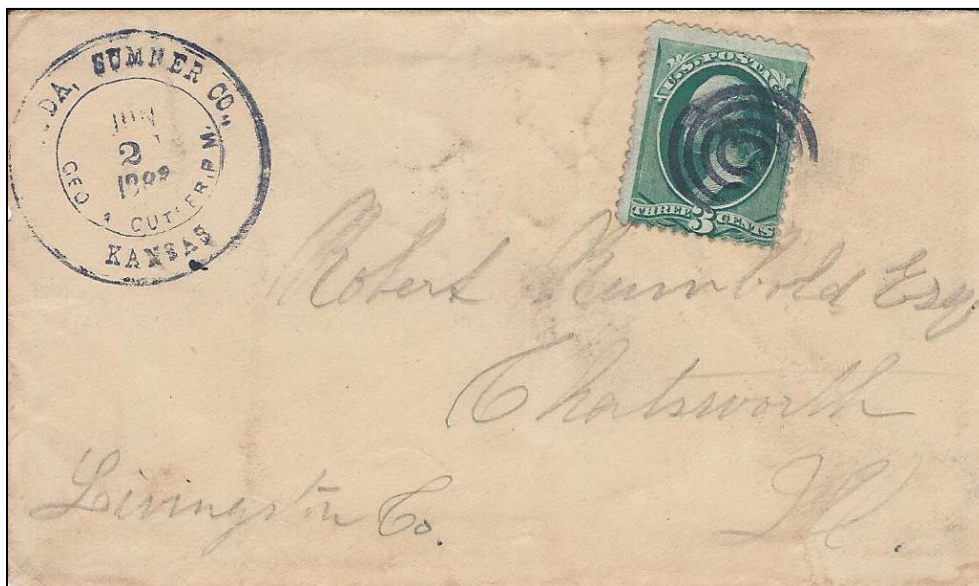 DA, SUMNER CO.,
JUN
2
GEO CUTLER P.M.
KANSAS
U.S. POSTAG
THREE 3 CENTS
Robert Rumbold Esq.
Chatsworth
Livingston Co. Ill.